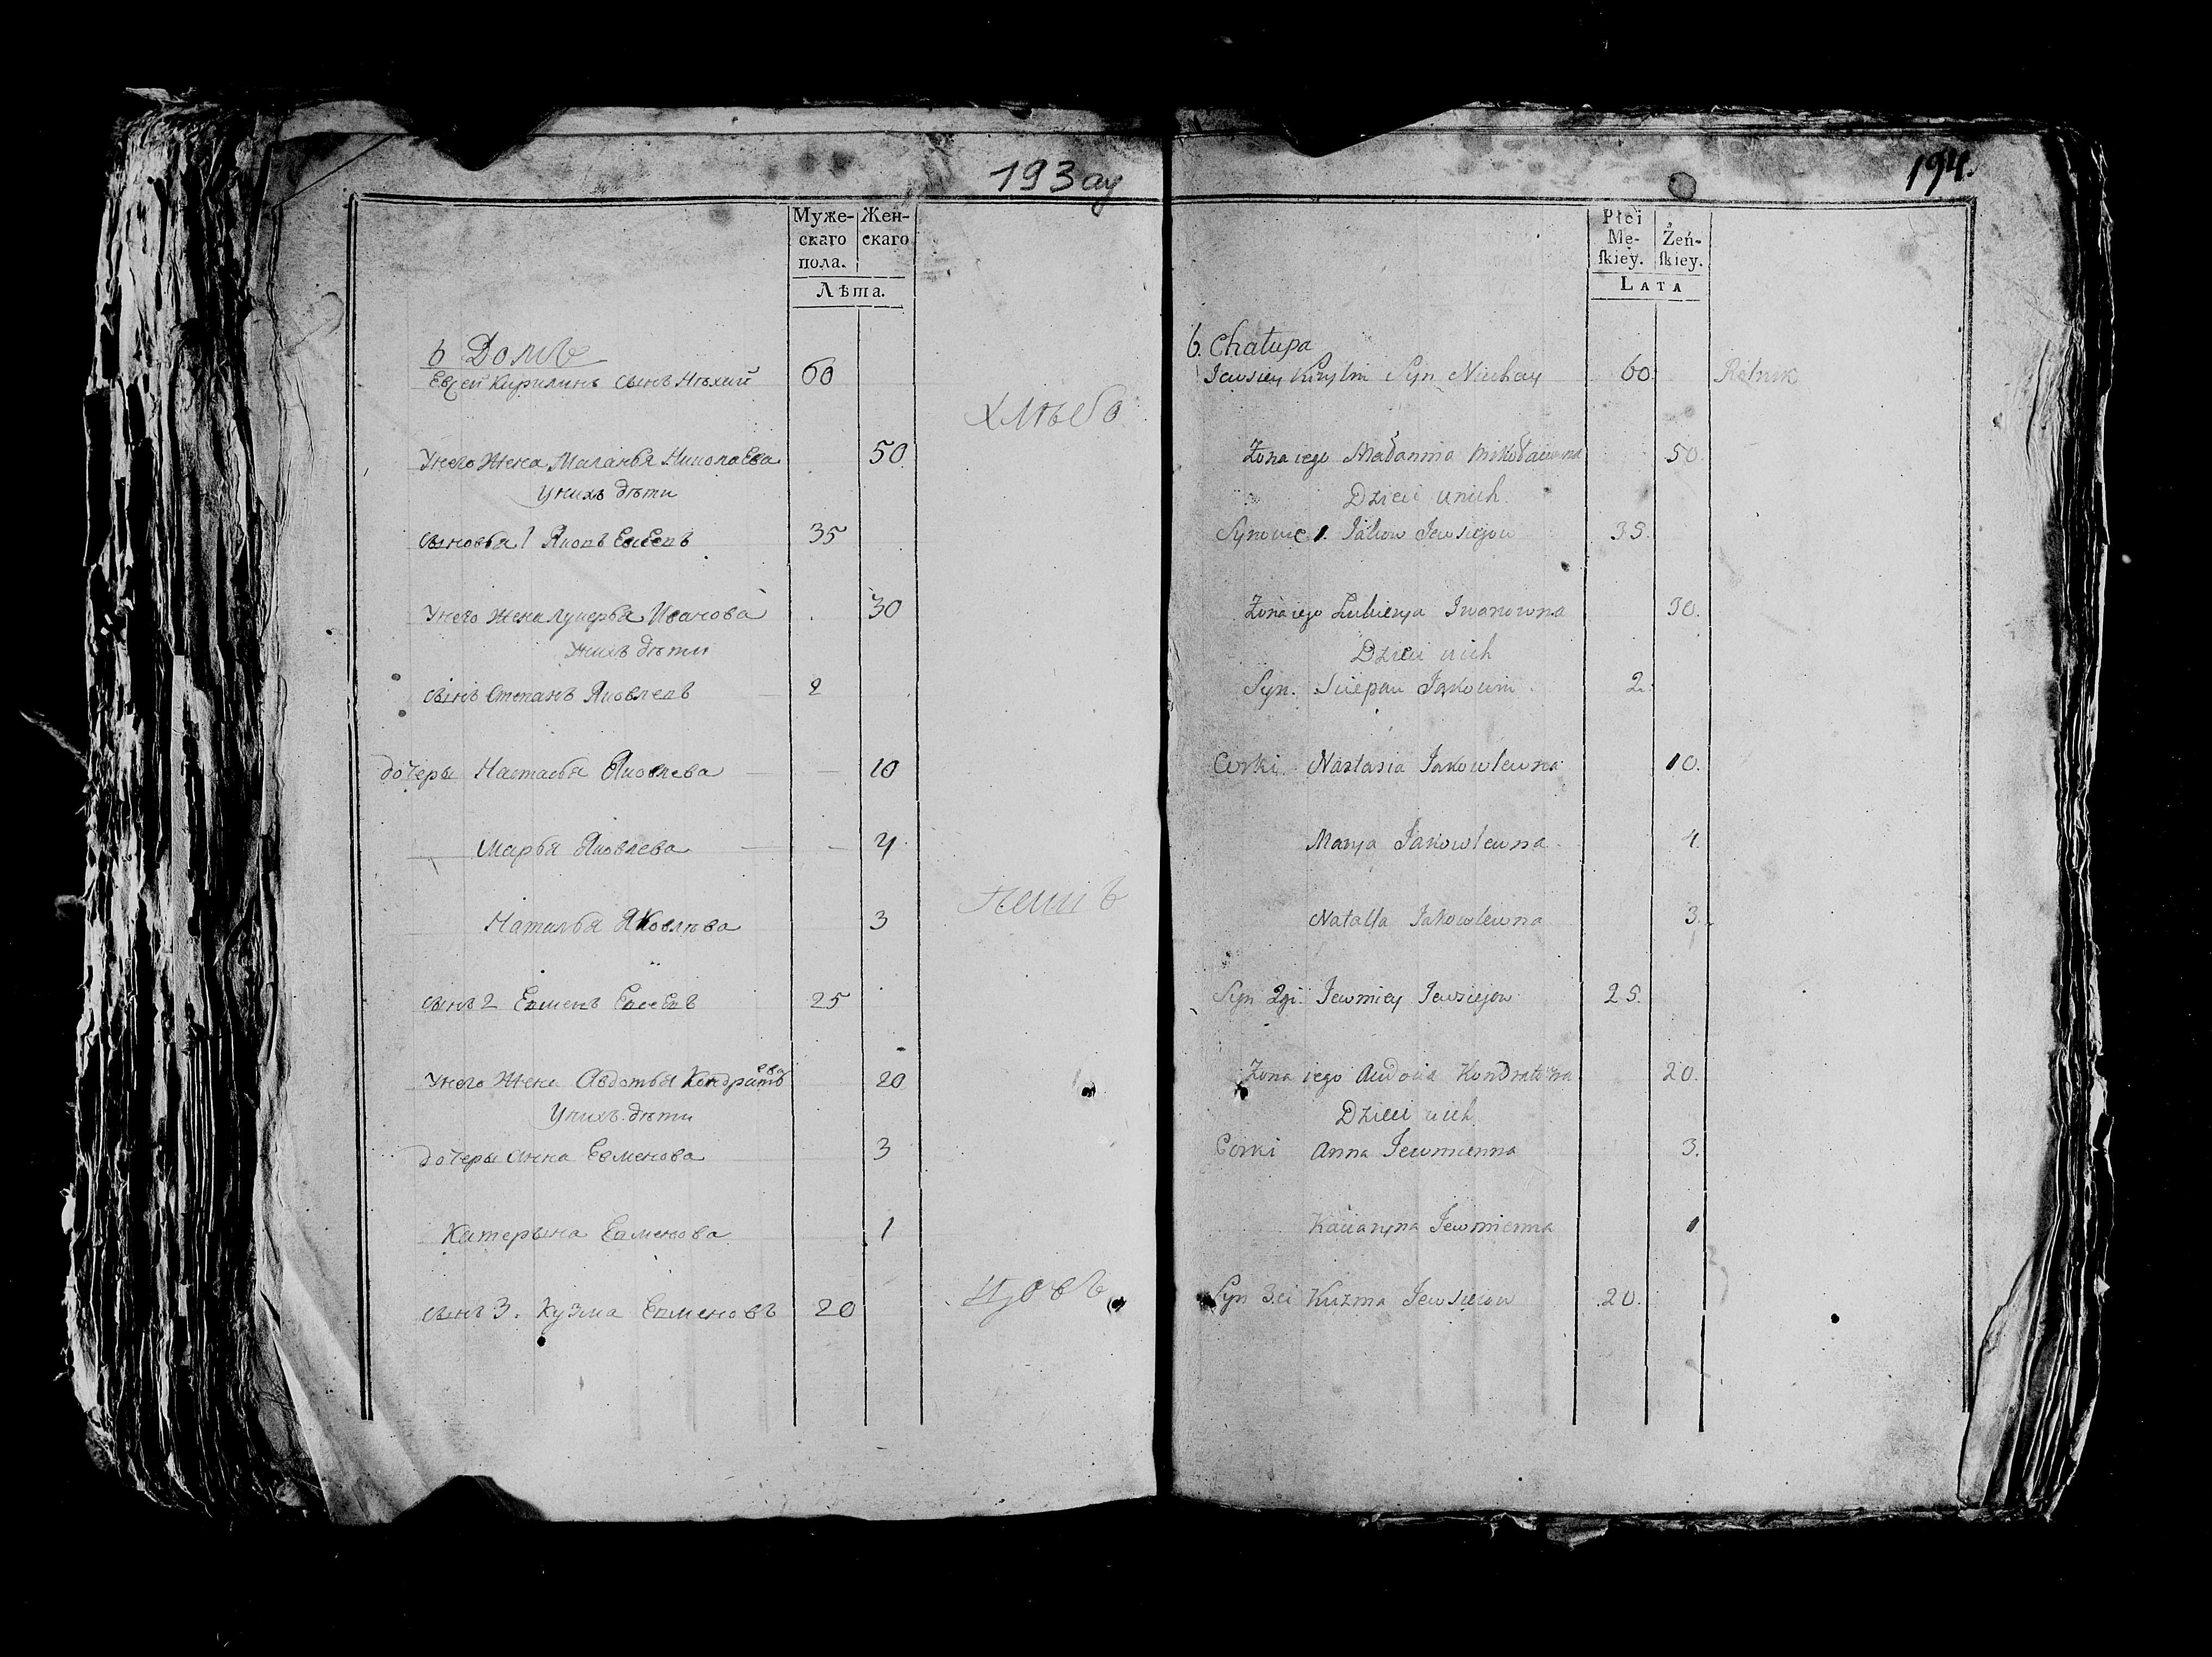 193 ау
Муже-
скаго
пола.
Жен-
скаго
Лѣта.
6 Домъ
Евсей Кирилинъ сынъ Нѣхай 60
хлѣбо
У него Жена Маланья Николаева 50
У нихъ дѣти
сыновья 1 Яковъ Евсеевъ 35
У него жена Лукерья Иванова 30
У нихъ дѣти
сынъ Степанъ Яковлевъ 2
дочеры Настасья Яковлева 10
Марья Яковлева 4
пашъ
Наталья Яковлѣва 3
сынъ 2 Евменъ Евсеевъ 25
У него Жена Авдотья Кондратьева 20
У нихъ дѣти
дочеры Анна Евменова 3
Катерына Евменова 1
цовъ
сынъ 3. Кузма Евменовъ 20
194.
Płci
Mę-
ſkiey.
Żeń-
ſkiey.
LATA
6. Chałupa
Jewsiey Kirylin Syn Niechay 60 Rolnik
Żona iego Małannia Mikołaiewna 50.
Dzieci u nich
Synowie 1. Jakow Jewsiejow 35.
Żona iego Lukierya Iwanowna 30.
Dzieci u ich
Syn. Sciepan Jakowin 2.
Corki Nastasia Jakowlewna 10.
Marya Jakowlewna 4.
Natalla Jakowlewna 3.
Syn 2gi Jewmiey Jewsiejow 25.
Żona iego Audocia Kondratowna 20.
Dzieci u ich
Corki Anna Jewmienna 3.
Kaciaryna Jewmienna 1
Syn 3ci Kuzma Jewsiejow 20.